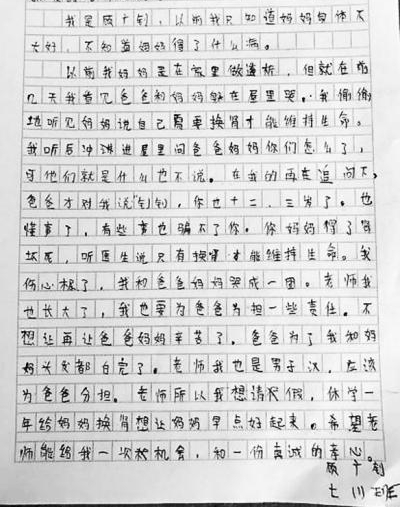 我是顾十钊，以前我只知道妈妈身体不
太好，不知道妈妈得了什么病。
以前我妈妈是在家里做透析，但就在前
几天我看见爸爸和妈妈躲在屋里哭。我偷偷
地听见妈妈说自己需要换肾才能维持生命。
我听后冲进进屋里问爸爸妈妈你们怎么了，
可他们就是什么也不说。在我的再在追问下，
爸爸才对我说"钊钊，你也十二、三岁了。也
懂事了，有些事也骗不了你。你妈妈得了肾
坏死，听医生说只有换肾才能维持生命。我
伤心极了，我和爸爸妈妈哭成一团。老师我
也长大了，我也要为爸爸分担一些责任。不
想让再让爸爸妈妈辛苦了。爸爸为了我和妈
妈头发都白完了。老师我也是男子汉，应该
为爸爸分担。老师所以我想请次假，休学一
年给妈妈换肾想让妈妈早点好起来。希望老
师能给我一次机会，和一份真诚的孝心。
顾十钊
七川班